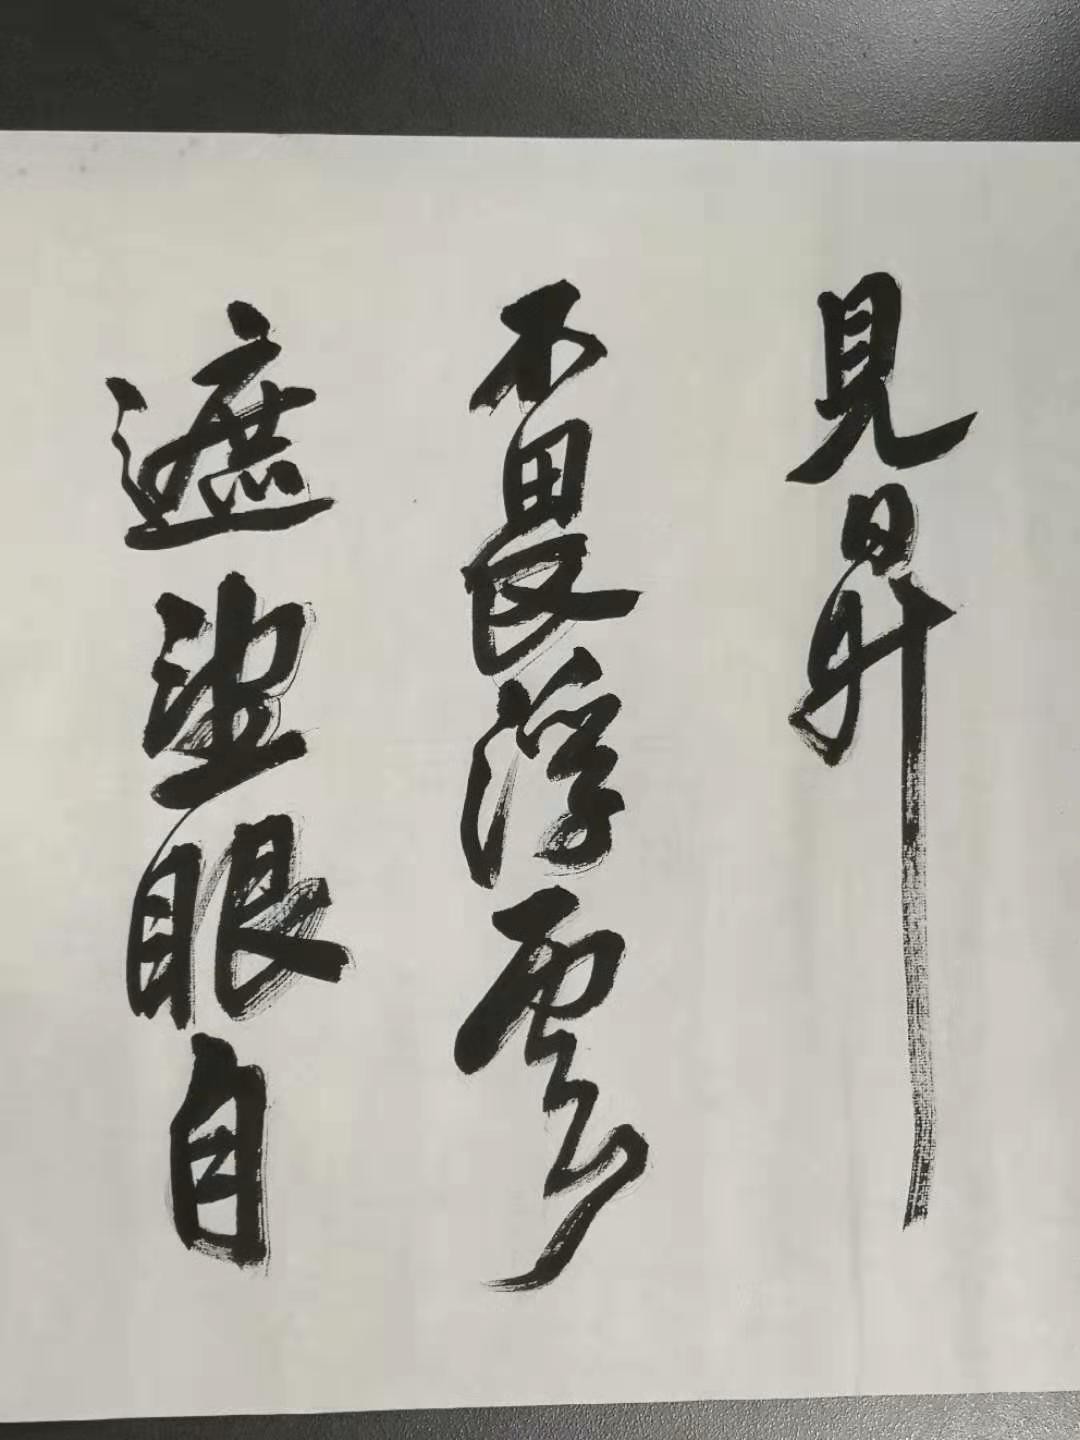 見日升
不畏浮雲
遮望眼自